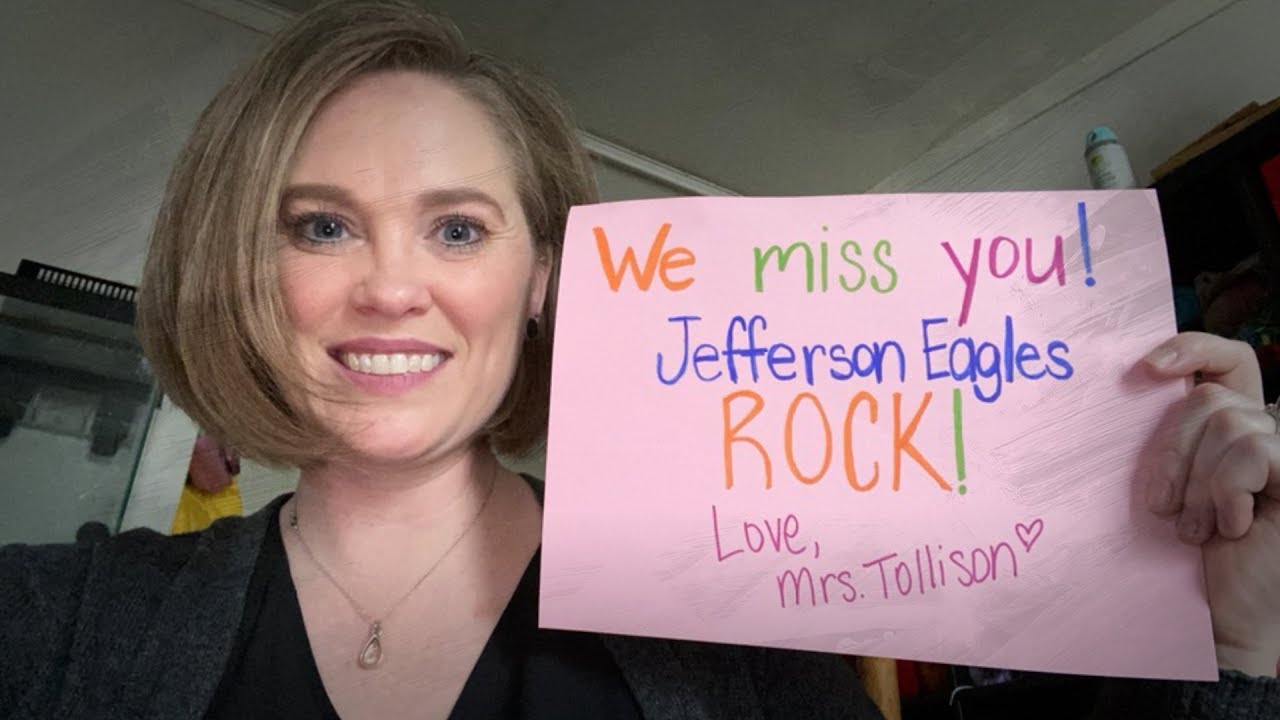 We miss you!
Jefferson Eagles
ROCK!
Love,
Mrs. Tollison♡